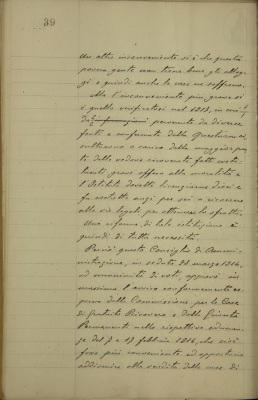 39
Un altro inconveniente si è che questa
povera gente non tiene bene gli allog-
gi e quindi anche le case ne soffrono.
Ma l'inconveniente più grave si
è quello verificatosi nel 1913, in cui
da informazioni pervenute da diverse
fonti e confermate dalla Questura ri-
sultarono a carico della maggior par-
te delle vedove ricoverate fatti costi-
tuenti grave offesa alla moralità e
l'Istituto dovette licenziarne dieci e
fu costretto anzi per noi a ricorrere
alle vie legali per ottenere lo sfratto.
Una riforma di tale istituzione è
quindi di tutta necessità.
Perciò questo Consiglio di Ammi-
nistrazione, in seduta 28 marzo 1914,
ad unanimità di voti, approvò in
massima l'avviso conformemente es-
presso dalle Commissioni per le Case
di gratuito Ricovero e della Privata
Permanenti nelle rispettive adunan-
ze del 7 e 17 febbraio 1914, che cioè
fosse più conveniente ed opportuno
addivenire alla vendita delle case di